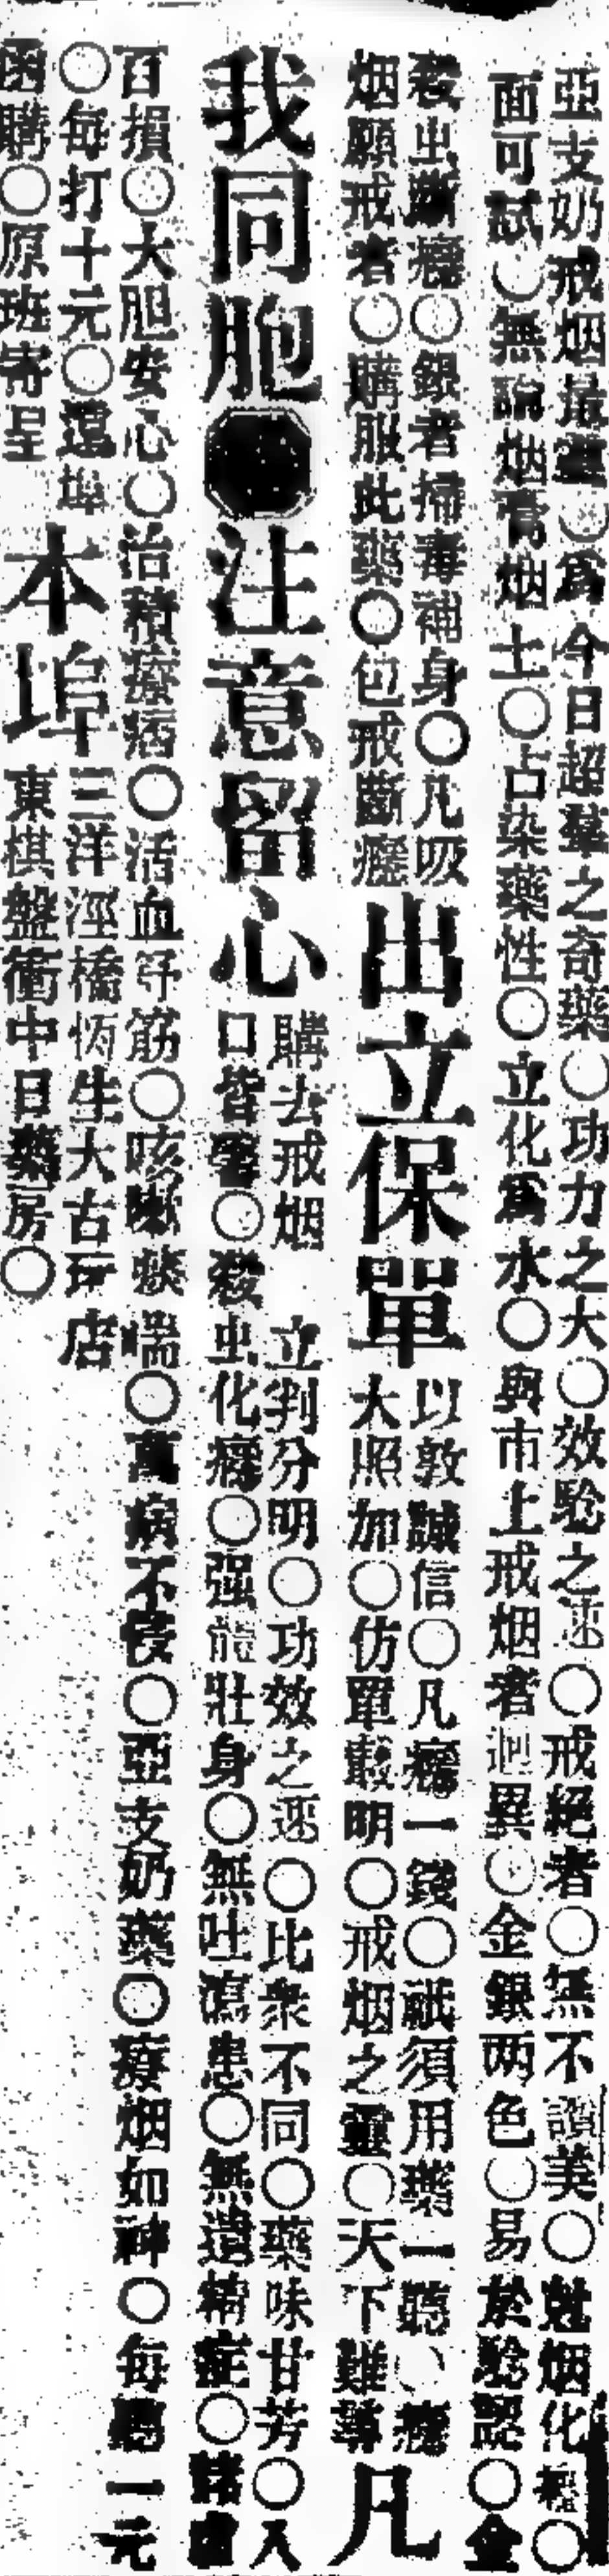 亞支奶戒烟最靈○為今日超羣之奇藥○功力之大○效騐之速○戒絕者○無不讚美○尅烟化○
面可試○無論烟膏烟土○占染藥性○立化爲水○與市上戒烟者迥異○金銀两色○易於騐認○金
殺虫斷癮○銀者掃毒補身○凡吸
烟願戒者○購服此藥○包戒斷癮
出立保單
以敦誠信○凡癮一錢○祇須用藥一聽○癮
大照加○仿單載明○戒烟之靈○天下難尋
凡
我同胞
注意留心
購去戒烟 立判分明○功效之速○比衆不同○藥味甘芳○入
口皆○殺虫化癮○强體壯身○無吐瀉患○無遺精症○諸虛
百損○大胆安心○治積療病○活血舒筋○咳嗽痰喘○萬病不侵○亞支奶藥○癈烟如神○每聽一元
○每打十元○遠埠
函購○原班寄呈
本埠
三洋涇橋恆生大古玩店
東棋盤街中日藥房○